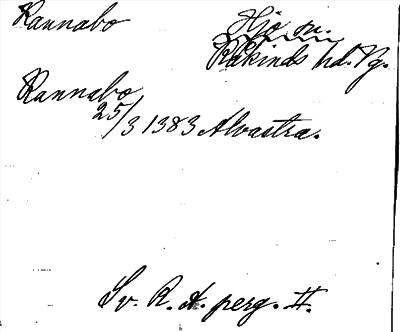 Rannabo
Hjo sn.
Råkinds hd. Vg.
Rannabo
25/3 1383 Alvastra.
Sv. R. A. perg. II.